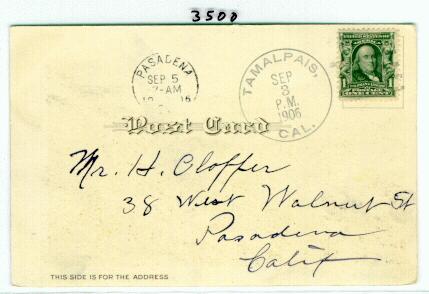 3500
PASADENA
SEP 5
-AM
TAMALPAIS,
SEP
3
P.M.
1906
CAL.
Post Card
Mr. H. Cloffer
38 West Walnut St
Pasadena
Calif
THIS SIDE IS FOR THE ADDRESS